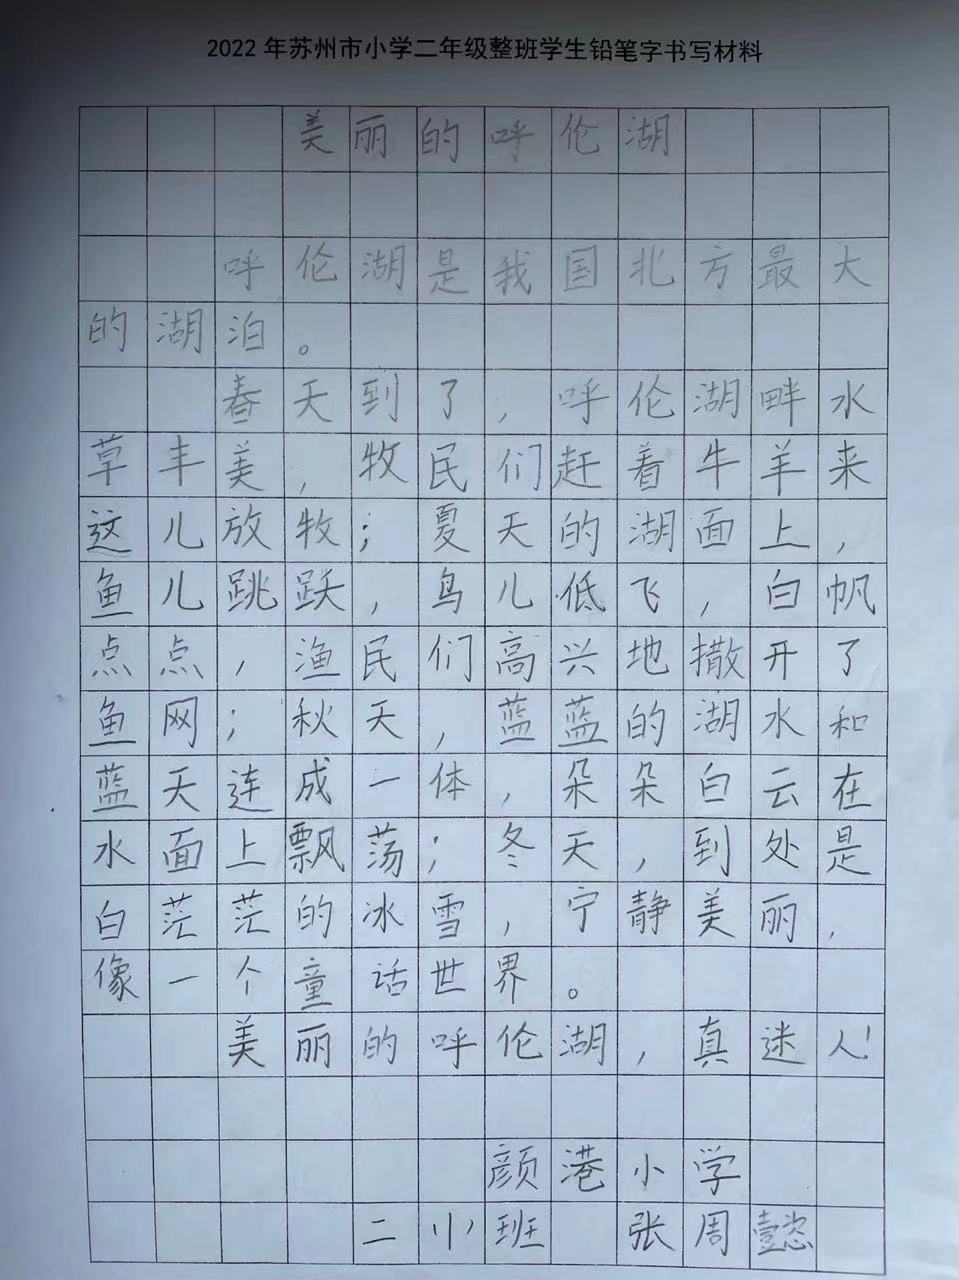 2022年苏州市小学二年级整班学生铅笔字书写材料
美丽的呼伦湖
呼伦湖是我国北方最大
的湖泊。
春天到了，呼伦湖畔水
草丰美，牧民们赶着牛羊来
这儿放牧；夏天的湖面上，
鱼儿跳跃，鸟儿低飞，白帆
点点，渔民们高兴地撒开了
鱼网；秋天，蓝蓝的湖水和
蓝天连成一体，朵朵白云在
水面上飘荡；冬天，到处是
白茫茫的冰雪，宁静美丽，
像一个童话世界。
美丽的呼伦湖，真迷人！
颜港小学
二小班 张周懿